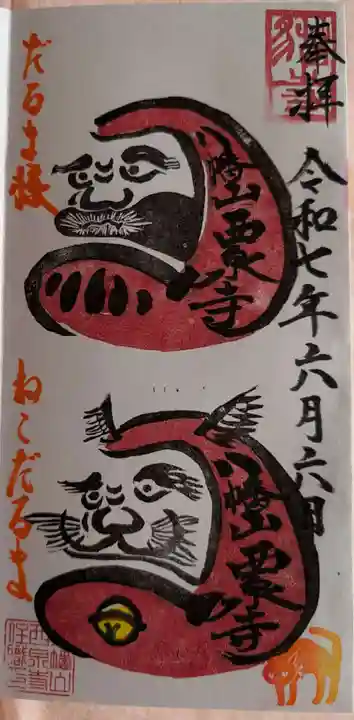 奉拝
令和七年六月六日
八幡山栗寺
だるま様
八幡山栗寺
ねこだるま